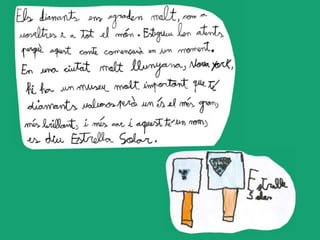 Els diamants ens agraden molt, com a
vosaltres i a tot el món. Estigueu ben atents
perquè aquest conte començarà en un moment.
En una ciutat molt llunyana, Nova york,
hi ha un museu molt important que té
diamants valuosos però un és el més gran,
més brillant, i més car i aquest té un nom,
es diu Estrella Solar.
Estrella
Solar